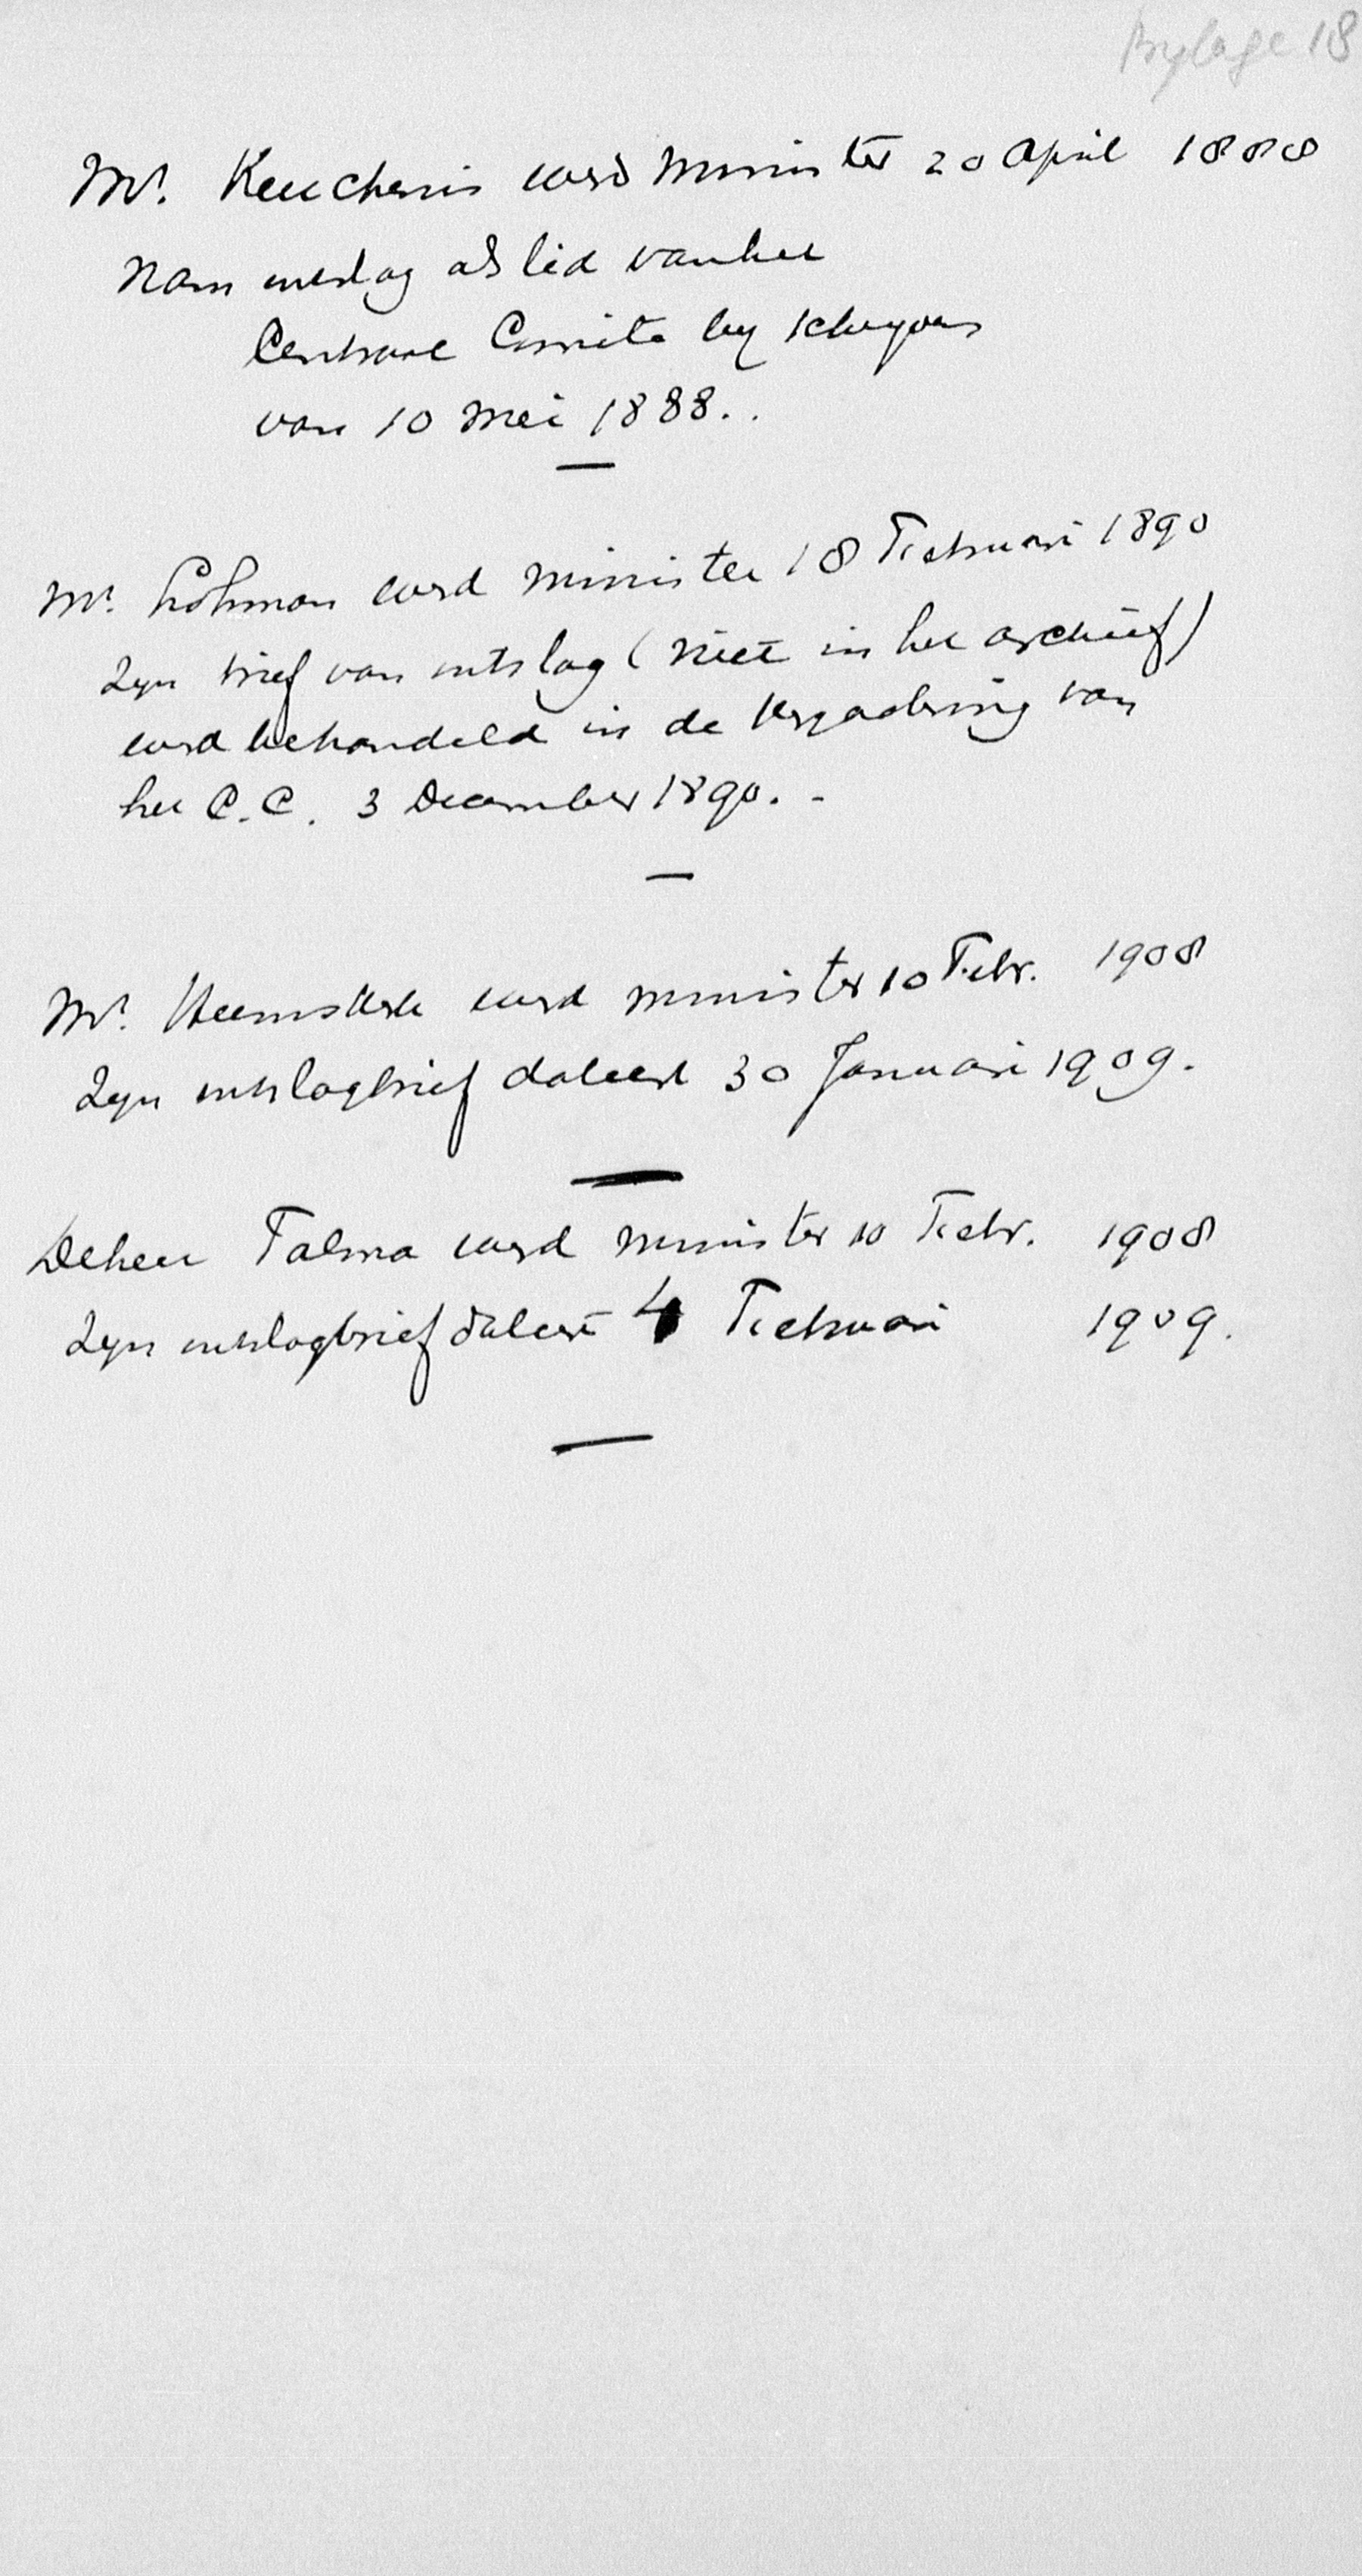 Bylage 18
Mr. Keuchenis werd Minister 20 April 1888
Nam ontslag als lid van het
Centraal Comite by schryven
van 10 Mei 1888.
Mr. Lohman werd minister 18 Februari 1890
Zyn brief van ontslag (niet in het archief)
werd behandeld in de vergadering van
het C.C. 3 December 1890. -
Mr. Heemskerk werd minister 10 Febr. 1908
Zyn ontslagbrief dateert 30 Januari 1909.
De heer Talma werd minister 10 Febr. 1908
Zyn ontslagbrief dateert 4 Februari 1909.